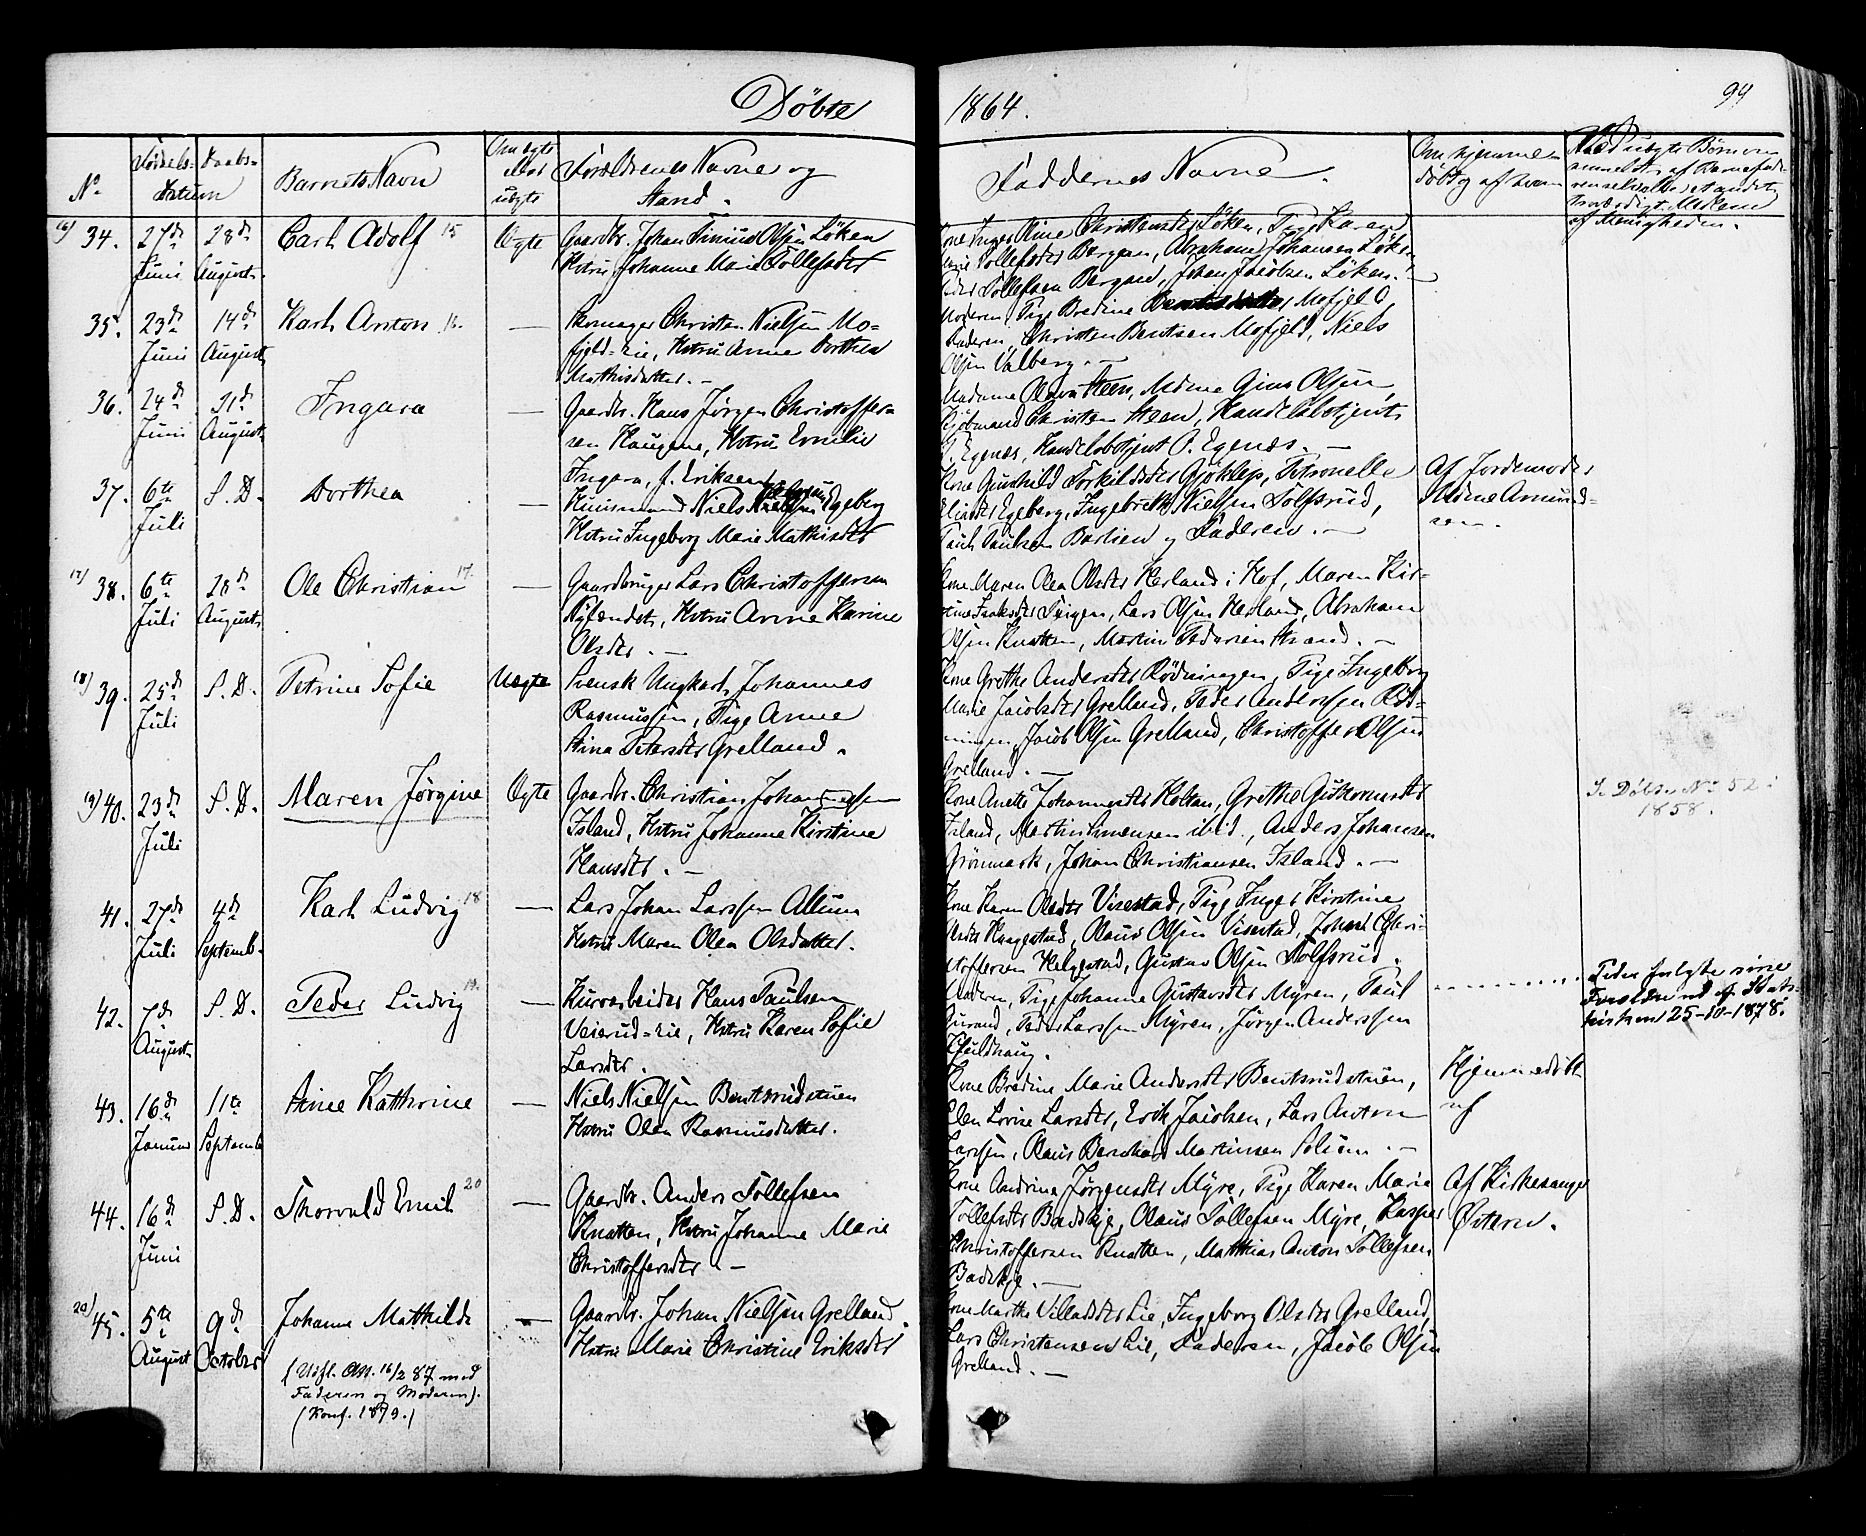 Döbte 1864. 99
No. Fødsels- Daabs-
Datum
Barnets Navn
Om ægte
eller
uægte
Forældrenes Navne og
Stand.
Faddernes Navne.
Om hjemme-
døbt og af hvem
16) 34. 27de Juni 28de August. Carl Adolf 15 Ægte
Gaardbr. Johan Tinius Olsen Löken
Hstru Johanne Marie Tollefsdtr
Kone Inger Mine Christensdtr Löken, Pige Karen
Marie Tollefsdtr Bergan, Abraham Johansen Löken,
Peder Tollefsen Bergan, Johan Jacobsen Löken. —
35. 23de Juni 14de August Karl Anton 16. —
Skomager Christen Nielsen Mo-
fjeld-eie, Hstru Anne Dorthea
Mathisdatter. —
Moderen, Pige Bredine Mofjeld,
Faderen, Christen Bentsen Mofjeld, Niels
Olsen Valberg. —
36. 24de Juni 21de August Ingara —
Gaardbr. Hans Jörgen Christoffer-
sen Haugene, Hstru Emilie
Ingara, f. Eriksen
Madame Olava Steen, Mdme Gina Olsen,
Kjöbmand Christen Steen, Handelsbetjent
Egenes, Handelsbetjent O. Egenes. —
37. 6te Juli S. D. Dorthea —
Huusmand Niels Egeberg
Hstru Ingeborg Marie Mathisdtr
Kone Gunhild Torkildsdtr Gjöklep, Petronelle
Eliasdtr Egeberg, Ingebreth Nielsen Solfsrud,
Paul Paulsen Barlien og Faderen. —
Af Jordemoder
Mdme Amund-
sen.
17) 38. 6te Juli 28de August Ole Christian 17. —
Gaardbruger Lars Christoffersen
Nylændet, Hstru Anne Karine
Olsdtr. —
Kone Maren Olea Olsdtr Herland i Hof, Maren Kir-
stine Isaksdtr Teigen, Lars Olsen Herland, Abraham
Olsen Knatten, Martin Pedersen Strand. —
18) 39. 25de Juli S. D. Petrine Sofie Uægte
Svensk Ungkarl Johannes
Rasmussen, Pige Anne
Stina Petersdtr Grelland.
Kone Grethe Andersdtr Rödningen, Pige Ingeborg
Marie Jacobsdtr Grelland, Peder Andersen Röd-
ningen, Jacob Olsen Grelland, Christoffer Olsen
Grelland. —
19) 40. 23de Juli S. D. Maren Jørgine Ægte
Gaardbr. Christian Johannesen
Island, Hstru Johanne Kirstine
Hansdtr. —
Kone Anette Johannesdtr Holtan, Grethe Guthormsdtr
Island, Martin Simensen ibid., Anders Johansen
Grönmark, Johan Christiansen Island. —
S. Döbte No 52.
1858.
41. 27de Juli 4de Septemb. Karl Ludvig 18 —
Lars Johan Larssen Allum
Hstru Maren Olea Olsdatter.
Kone Karen Olsdtr Virestad, Pige Inger Kirstine
Olsdtr Haagestad, Olaus Olsen Virestad, Johan Chri-
stoffersen Helgestad, Gustav Olsen Solfsrud.
42. 7de August S. D. Peder Ludvig 19. —
Kurvarbeider Hans Paulsen
Veierud-eie, Hstru Karen Sofie
Larsdtr.
Moderen, Pige Johanne Gustavsdtr Myren, Paul
Durand, Peder Larssen Myren, Jörgen Anderssen
Skuldhaug.
Peder fulgte sine
Forældre ud af Stats-
kirken 25-10-1878.
43. 16de Januar 11te Septemb Anne Kathrine —
Niels Nielsen Bentsrudstuen
Hstru Olea Rasmusdatter.
Kone Bredine Marie Andersdtr Bentsrudstuen,
Elen Lovise Larsdtr, Erik Jacobsen, Lars Anton
Larssen, Olaus Bernhard Martinsen Solum. —
Hjemmedöbt
44. 16de Juni S. D. Thorvald Emil 20 —
Gaardbr. Anders Tollefsen
Knatten, Hstru Johanne Marie
Christoffersdtr —
Kone Andrina Jørgensdtr Myre, Pige Karen Marie
Tollefsdtr Badskje, Olaus Tollefsen Myre, Kasper
Christoffersen Knatten, Matthias Anton Tollefsen
Badskje. —
Af Kirkesanger
Østern.
20) 45. 5te August 9de October Johanne Mathilde —
Gaardbr. Johan Nielsen Grelland.
Hstru Marie Christine Eriksdtr
Kone Marthe Villadsdtr Lie, Ingeborg Olsdtr Grelland,
Lars Christensen Lie, Faderen, Jacob Olsen
Grelland. —
(Udfl. Att. 16/2 87 med
Faderen og Moderen).
(Konf. 1879.)